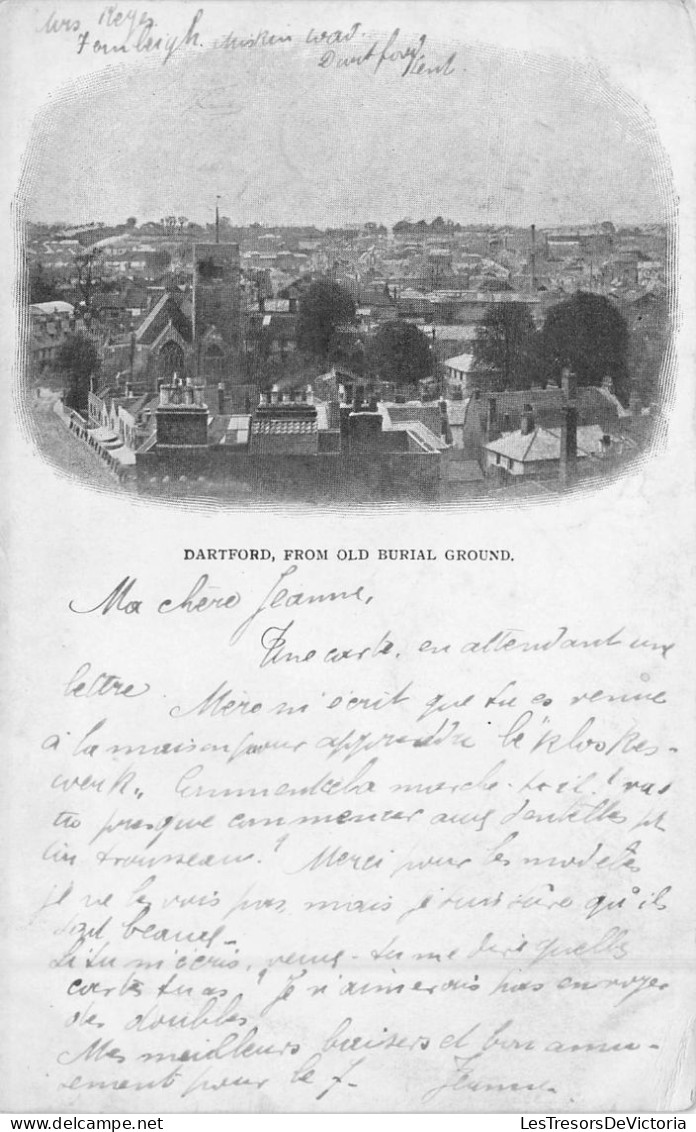 Mrs Keyes
Fernleigh. Miskin Road.
Dartford
Kent
DARTFORD, FROM OLD BURIAL GROUND.
Ma chère Jeanne,
Une carte, en attendant une
lettre. Mère m'écrit que tu es venue
à la maison pour apprendre le "Kloskes-
werk". Comment cela marche-t-il? vas
tu presque commencer aux dentelles pr
ton trousseau? Merci pour les modèles
je ne les vois pas, mais je suis sûre qu'ils
sont beaux.
Si tu m'écris, veux-tu me dire quelles
cartes tu as? Je n'aimerais pas envoyer
des doubles.
Mes meilleurs baisers et bon amu-
sement pour le 7. Jeanne.
LesTresorsDeVictoria